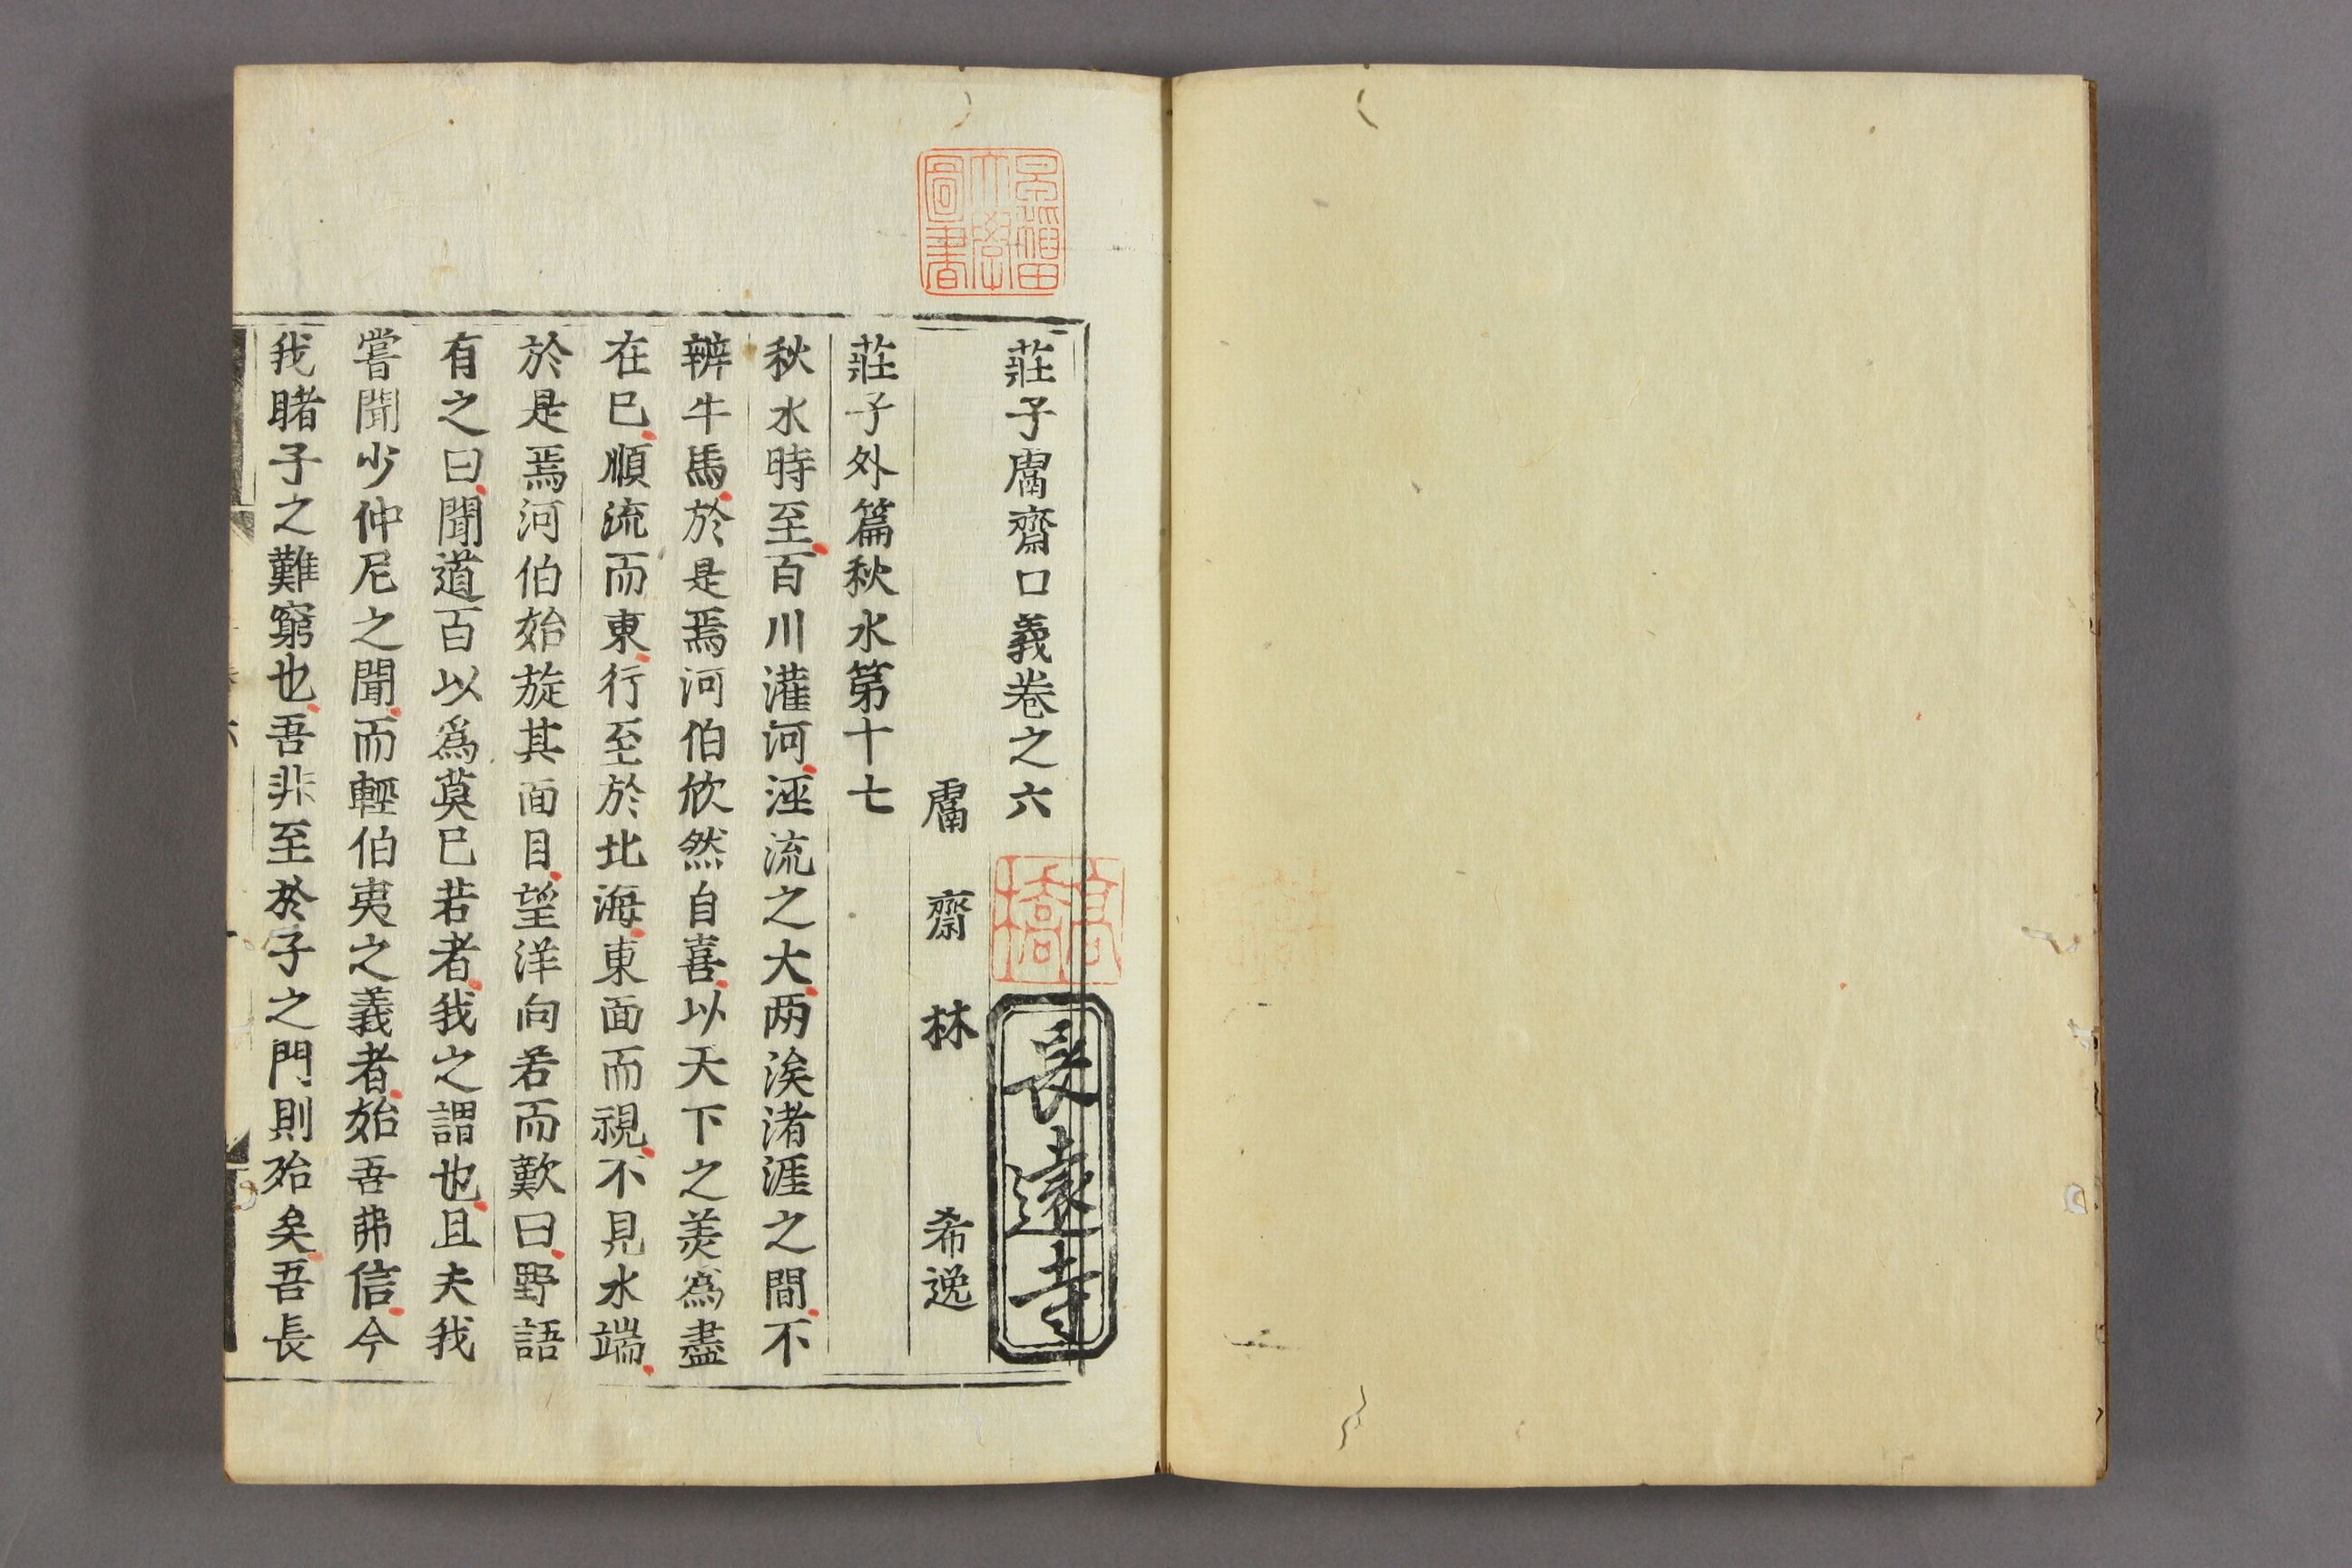 莊子鬳齋口義卷之六
鬳齋林希逸
莊子外篇秋水第十七
秋水時至百川灌河涇流之大两涘渚涯之間不
辨牛馬於是焉河伯欣然自喜以天下之羙爲盡
在已順流而東行至於北海東面而視不見水端
於是焉河伯始旋其面目望洋向若而歎曰野語
有之曰聞道百以爲莫已若者我之謂也且夫我
嘗聞少仲尼之聞而輕伯夷之義者始吾弗信今
我睹子之難窮也吾非至於子之門則殆矣吾長
高橋
長遠寺
早稲田大學圖書
六